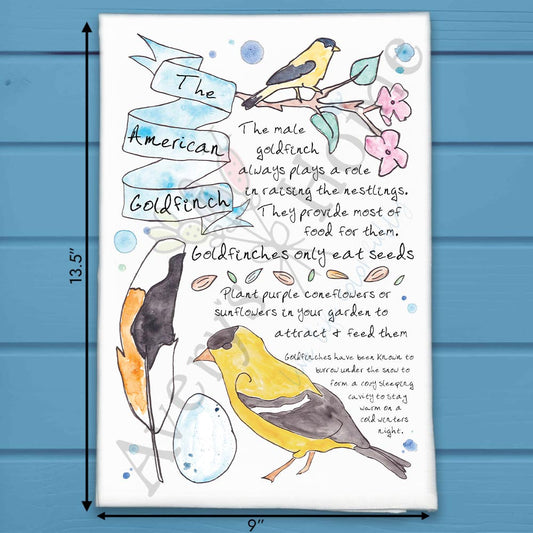 The
American
Goldfinch
The male
goldfinch
always plays a role
in raising the nestlings.
They provide most of
food for them.
Goldfinches only eat seeds
Plant purple coneflowers or
sunflowers in your garden to
attract & feed them
Goldfinches have been known to
burrow under the snow to
form a cozy sleeping
cavity to stay
warm on a
cold winters
night.
13.5"
9"
Avery's Home